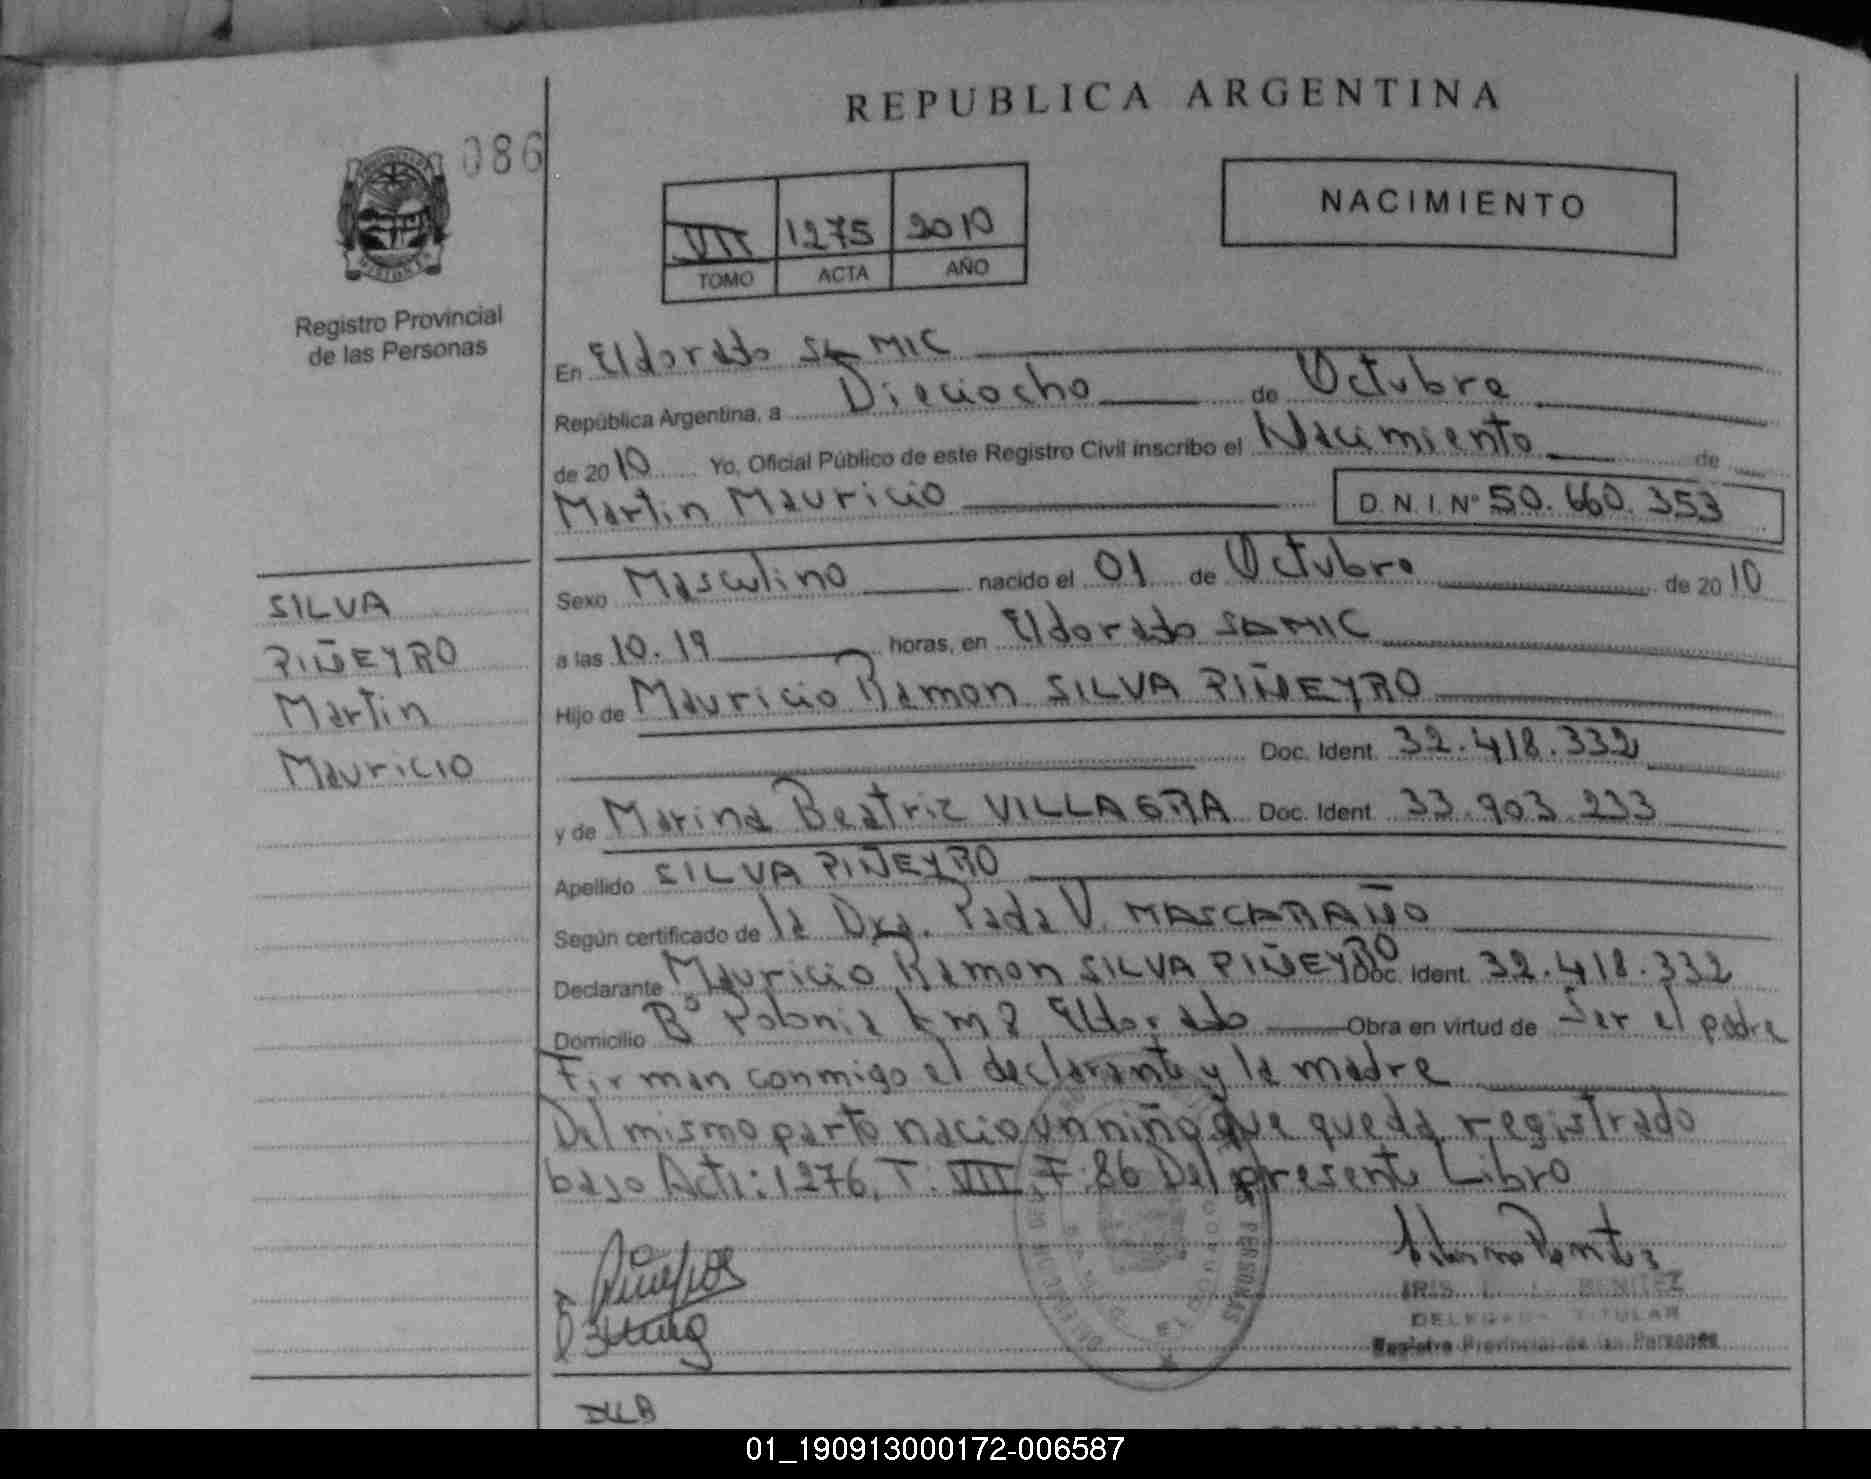 REPUBLICA ARGENTINA
086
NACIMIENTO
VII 1275 2010
TOMO ACTA AÑO
Registro Provincial
de las Personas
En Eldorado SAMIC
República Argentina, a Dieciocho de Octubre
de 2010 Yo, Oficial Público de este Registro Civil inscribo el Nacimiento de
Martin Mauricio D.N.I. Nº 50.660.353
SILVA
PIÑEYRO
Martin
Mauricio
Sexo Masculino nacido el 01 de Octubre de 2010
a las 10.19 horas, en Eldorado SAMIC
Hijo de Mauricio Ramon SILVA PIÑEYRO
Doc. Ident. 32.418.332
y de Marina Beatriz VILLAGRA Doc. Ident. 33.903.233
Apellido SILVA PIÑEYRO
Según certificado de la Dra. V. MASCARAÑO
Declarante Mauricio Ramon SILVA PIÑEYRO Doc. Ident. 32.418.332
Domicilio Bº Polonia km 8 Eldorado Obra en virtud de Ser el padre
Firman conmigo el declarante y la madre
Del mismo parto nacio un niño que queda registrado
bajo Acta: 1276, T: VII, F: 86 Del presente Libro
IRIS BENITEZ
DELEGADA TITULAR
Registro Provincial de las Personas
01_190913000172-006587